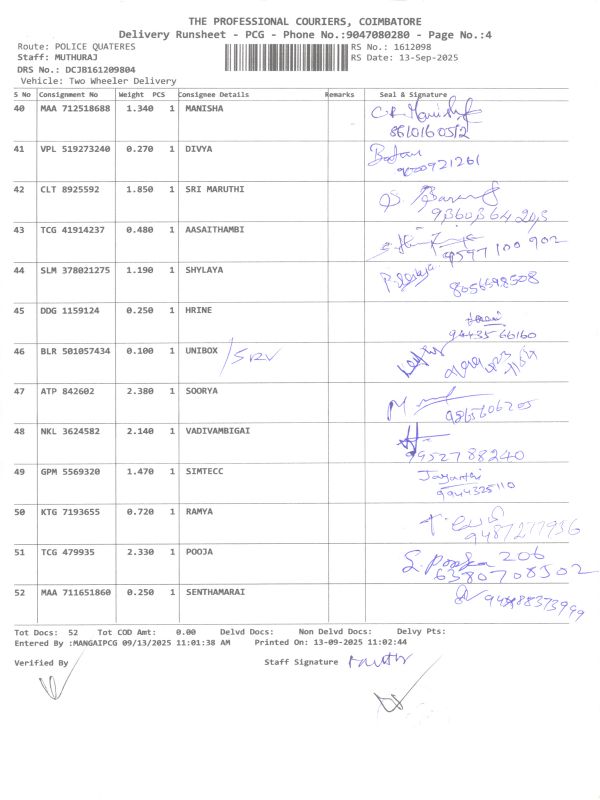 THE PROFESSIONAL COURIERS, COIMBATORE
Delivery Runsheet - PCG - Phone No.:9047080280 - Page No.:4
Route: POLICE QUATERES RS No.: 1612098
Staff: MUTHURAJ RS Date: 13-Sep-2025
DRS No.: DCJB161209804
Vehicle: Two Wheeler Delivery
S No Consignment No Weight PCS Consignee Details Remarks Seal & Signature
40 MAA 712518688 1.340 1 MANISHA
8610160512
41 VPL 519273240 0.270 1 DIVYA
42 CLT 8925592 1.850 1 SRI MARUTHI
43 TCG 41914237 0.480 1 AASAITHAMBI
9597100902
44 SLM 378021275 1.190 1 SHYLAYA
8056598508
45 DDG 1159124 0.250 1 HRINE
9443566160
46 BLR 501057434 0.100 1 UNIBOX /SRV
47 ATP 842602 2.380 1 SOORYA
9865606205
48 NKL 3624582 2.140 1 VADIVAMBIGAI
9952788240
49 GPM 5569320 1.470 1 SIMTECC Jayanthi
9944325110
50 KTG 7193655 0.720 1 RAMYA
9487277936
51 TCG 479935 2.330 1 POOJA S. Pooja 206
6380708502
52 MAA 711651860 0.250 1 SENTHAMARAI
Tot Docs: 52 Tot COD Amt: 0.00 Delvd Docs: Non Delvd Docs: Delvy Pts:
Entered By :MANGAIPCG 09/13/2025 11:01:38 AM Printed On: 13-09-2025 11:02:44
Verified By Staff Signature